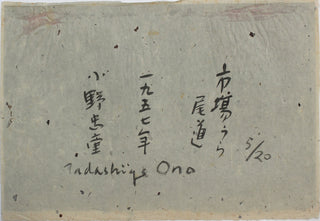 市場うら
尾道
5/20
一九五七年
小野忠重
Tadashige Ono